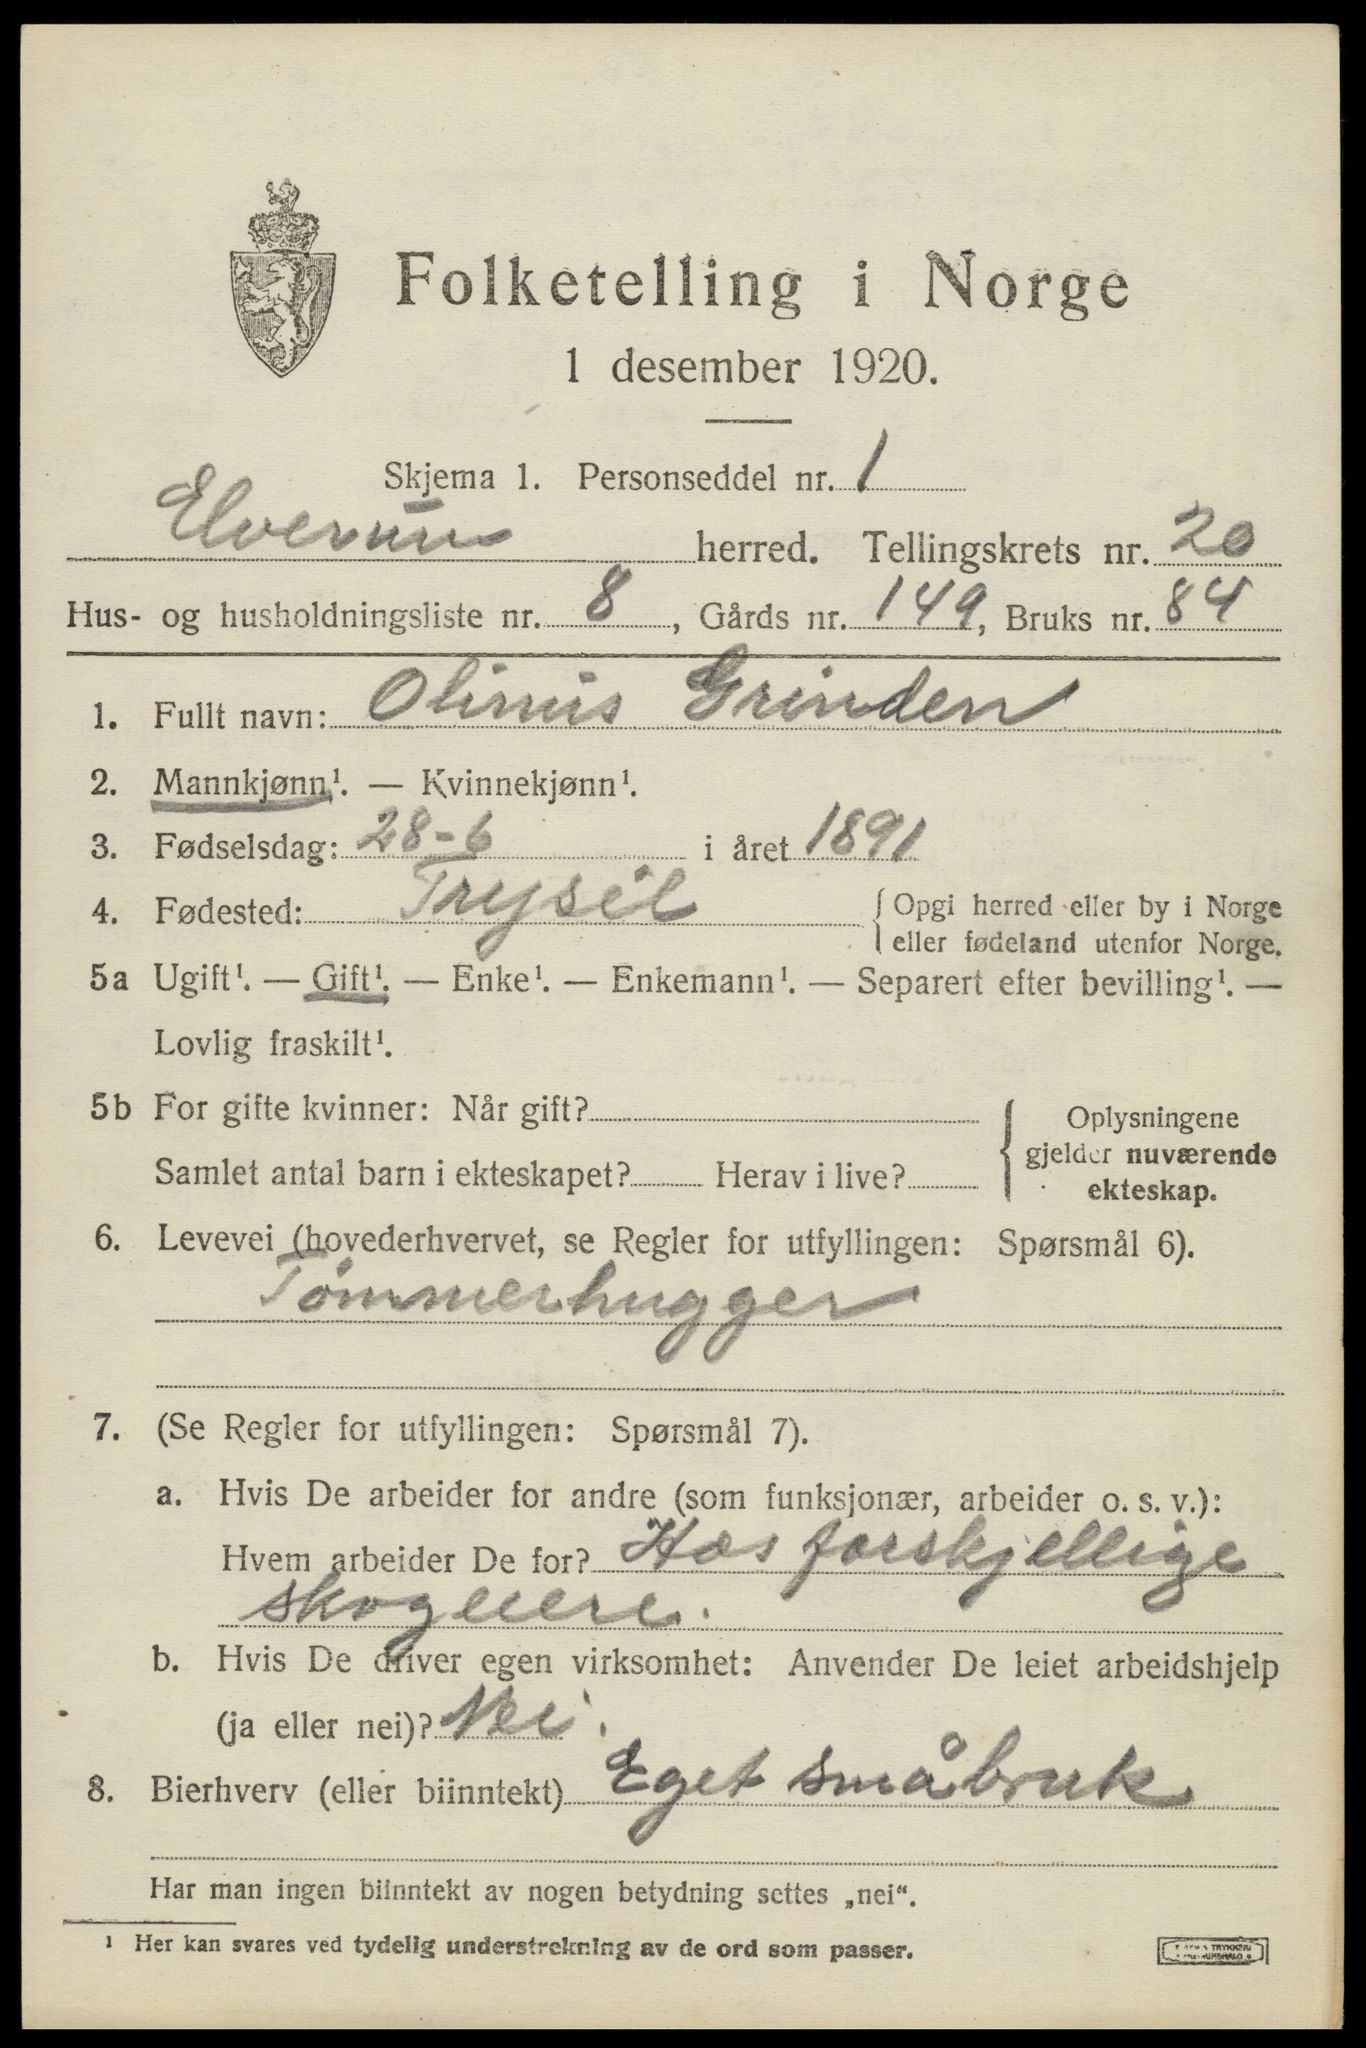 Folketelling i Norge
1 desember 1920.
Skjema 1. Personseddel nr. 1
Elverum herred. Tellingskrets nr. 20
Hus- og husholdningsliste nr. 8, Gårds nr. 149, Bruks nr. 84
1. Fullt navn: Olinus Grinden
2. Mannkjønn¹. — Kvinnekjønn¹.
3. Fødselsdag: 28-6 i året 1891
4. Fødested: Trysil {Opgi herred eller by i Norge
eller fødeland utenfor Norge.
5a Ugift¹. — Gift¹. — Enke¹. — Enkemann¹. — Separert efter bevilling¹. —
Lovlig fraskilt¹.
5b For gifte kvinner: Når gift?
Samlet antal barn i ekteskapet? Herav i live?
{Oplysningene
gjelder nuværende
ekteskap.
6. Levevei (hovederhvervet, se Regler for utfyllingen: Spørsmål 6).
Tømmerhugger
7. (Se Regler for utfyllingen: Spørsmål 7).
a. Hvis De arbeider for andre (som funksjonær, arbeider o. s. v.):
Hvem arbeider De for? Hos forskjellige
skogeiere.
b. Hvis De driver egen virksomhet: Anvender De leiet arbeidshjelp
(ja eller nei)? Nei.
8. Bierhverv (eller biinntekt) Eget småbruk
Har man ingen biinntekt av nogen betydning settes „nei“.
¹ Her kan svares ved tydelig understrekning av de ord som passer.